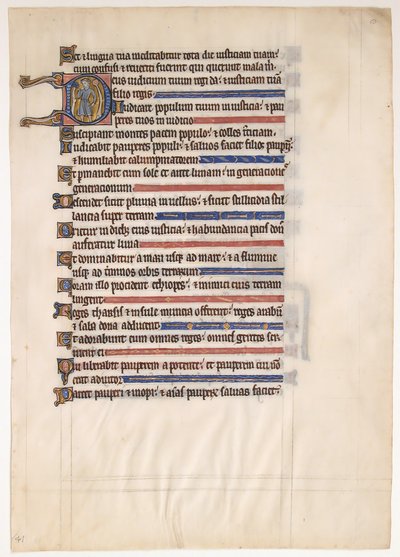 Et lingua mea meditabitur tota die iusticiam tuam:
cum confusi & reveriti fuerint qui querunt mala m.
Deus iudicium tuum regi da: & iusticiam tuā
filio regis.
Iudicare populum tuum in iusticia: & pau
peres tuos in iudicio
Suscipiant montes pacem populo: & colles iusticiam.
Iudicabit pauperes populi: & salvos faciet filios paupm̄:
& humiliabit calumpniatorem
Et permanebit cum sole & ante lunam: in generatione &
generationum
Descendet sicut pluvia in vellus: & sicut stillicidia stil
lancia super terram
Orietur in dieb; eius iusticia: & habundancia pacis don
auferatur luna
Et dominabitur a mari usq; ad mare: & a flumine
usq; ad t'minos orbis terrarum
Coram illo procident ethiopes: & inimici eius terram
lingent
Reges tharsis & insule munera offerent: reges arabū
& saba dona adducent
Et adorabunt eum omnes reges: omnes gentes ser
vient ei
Quia liberabit pauperem a potente: & pauperem cui nō
erat adiutor
Parcet pauperi & inopi: & aīas pauperū salvas faciet:
41